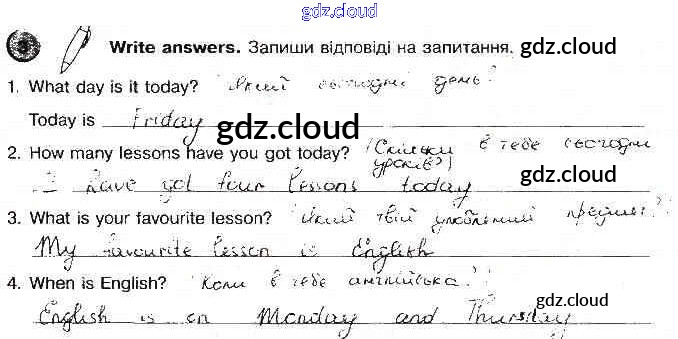 gdz.cloud
3 Write answers. Запиши відповіді на запитання. gdz.cloud
1. What day is it today? Який сьогодні день?
Today is Friday
gdz.cloud
2. How many lessons have you got today? (Скільки в тебе сьогодні
уроків?)
gdz.cloud
I have got four lessons today
3. What is your favourite lesson? Який твій улюблений предмет?
My favourite lesson is English
gdz.cloud
4. When is English? Коли в тебе англійська?
gdz.cloud
English is on Monday and Thursday
gdz.cloud